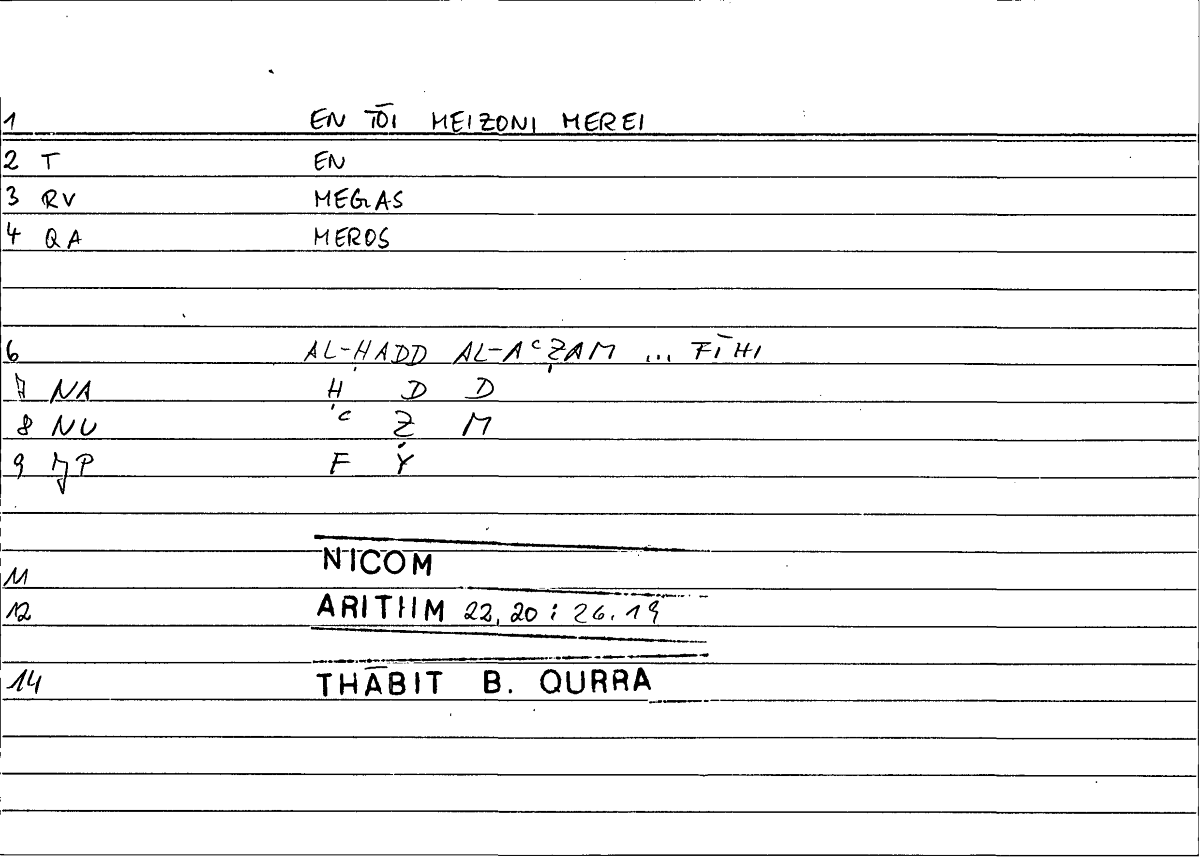 1 EN TŌI MEIZONI MEREI
2 T EN
3 RV MEGAS
4 QA MEROS
6 AL-ḤADD AL-AʿẒAM ... FĪHI
7 NA Ḥ D D
8 NU ʿ Ẓ M
9 JP F Y
11 NICOM
12 ARITHM 22,20 : 26.19
14 THĀBIT B. QURRA